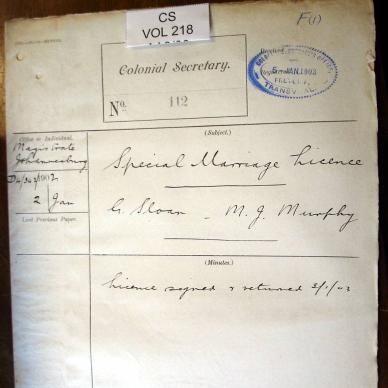 CS
VOL 218
F(1)
Colonial Secretary.
5 JAN 1903
TRANSVAAL
No. 112
Office or Individual.
Magistrate
Johannesburg
1902
2 Jan
Last Previous Paper.
(Subject.)
Special Marriage Licence
G. Sloan - M. J. Murphy
(Minutes.)
Licence signed & returned 3/1/03